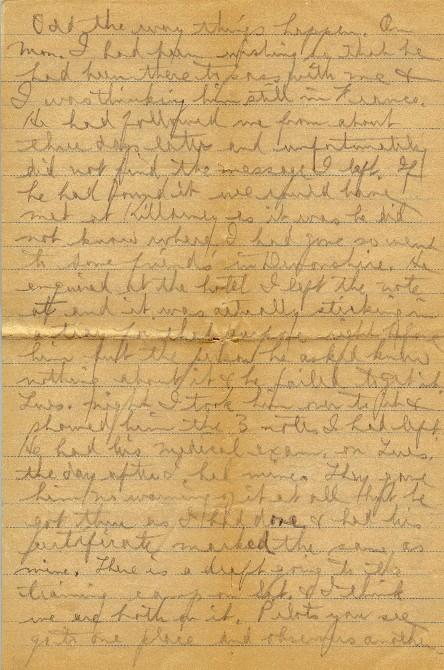 Odd the way things happen. On
Mon. I had been wishing that he
had been there to pass with me &
I was thinking him still in France.
He had followed me from about
three days later and unfortunately
did not find the message I left. If
he had found it we could have
met at Killarney as it was he did
not know where I had gone so went
to some friends in Devonshire. He
enquired at the hotel I left the note
at and it was actually sticking in
a for that purpose right before
him but the person he asked knew
nothing about it & he failed to get it.
Tues. night I took him over to &
showed him the 3 notes I had left.
He had his medical exam. on Tues.
the day after I had mine. They gave
him no warning of it at all but he
got thru as I had done & had his
certificate marked the same as
mine. There is a draft going to the
training camp on Sat. & I think
we are both on it. Pilots you see
go to one place and observers another